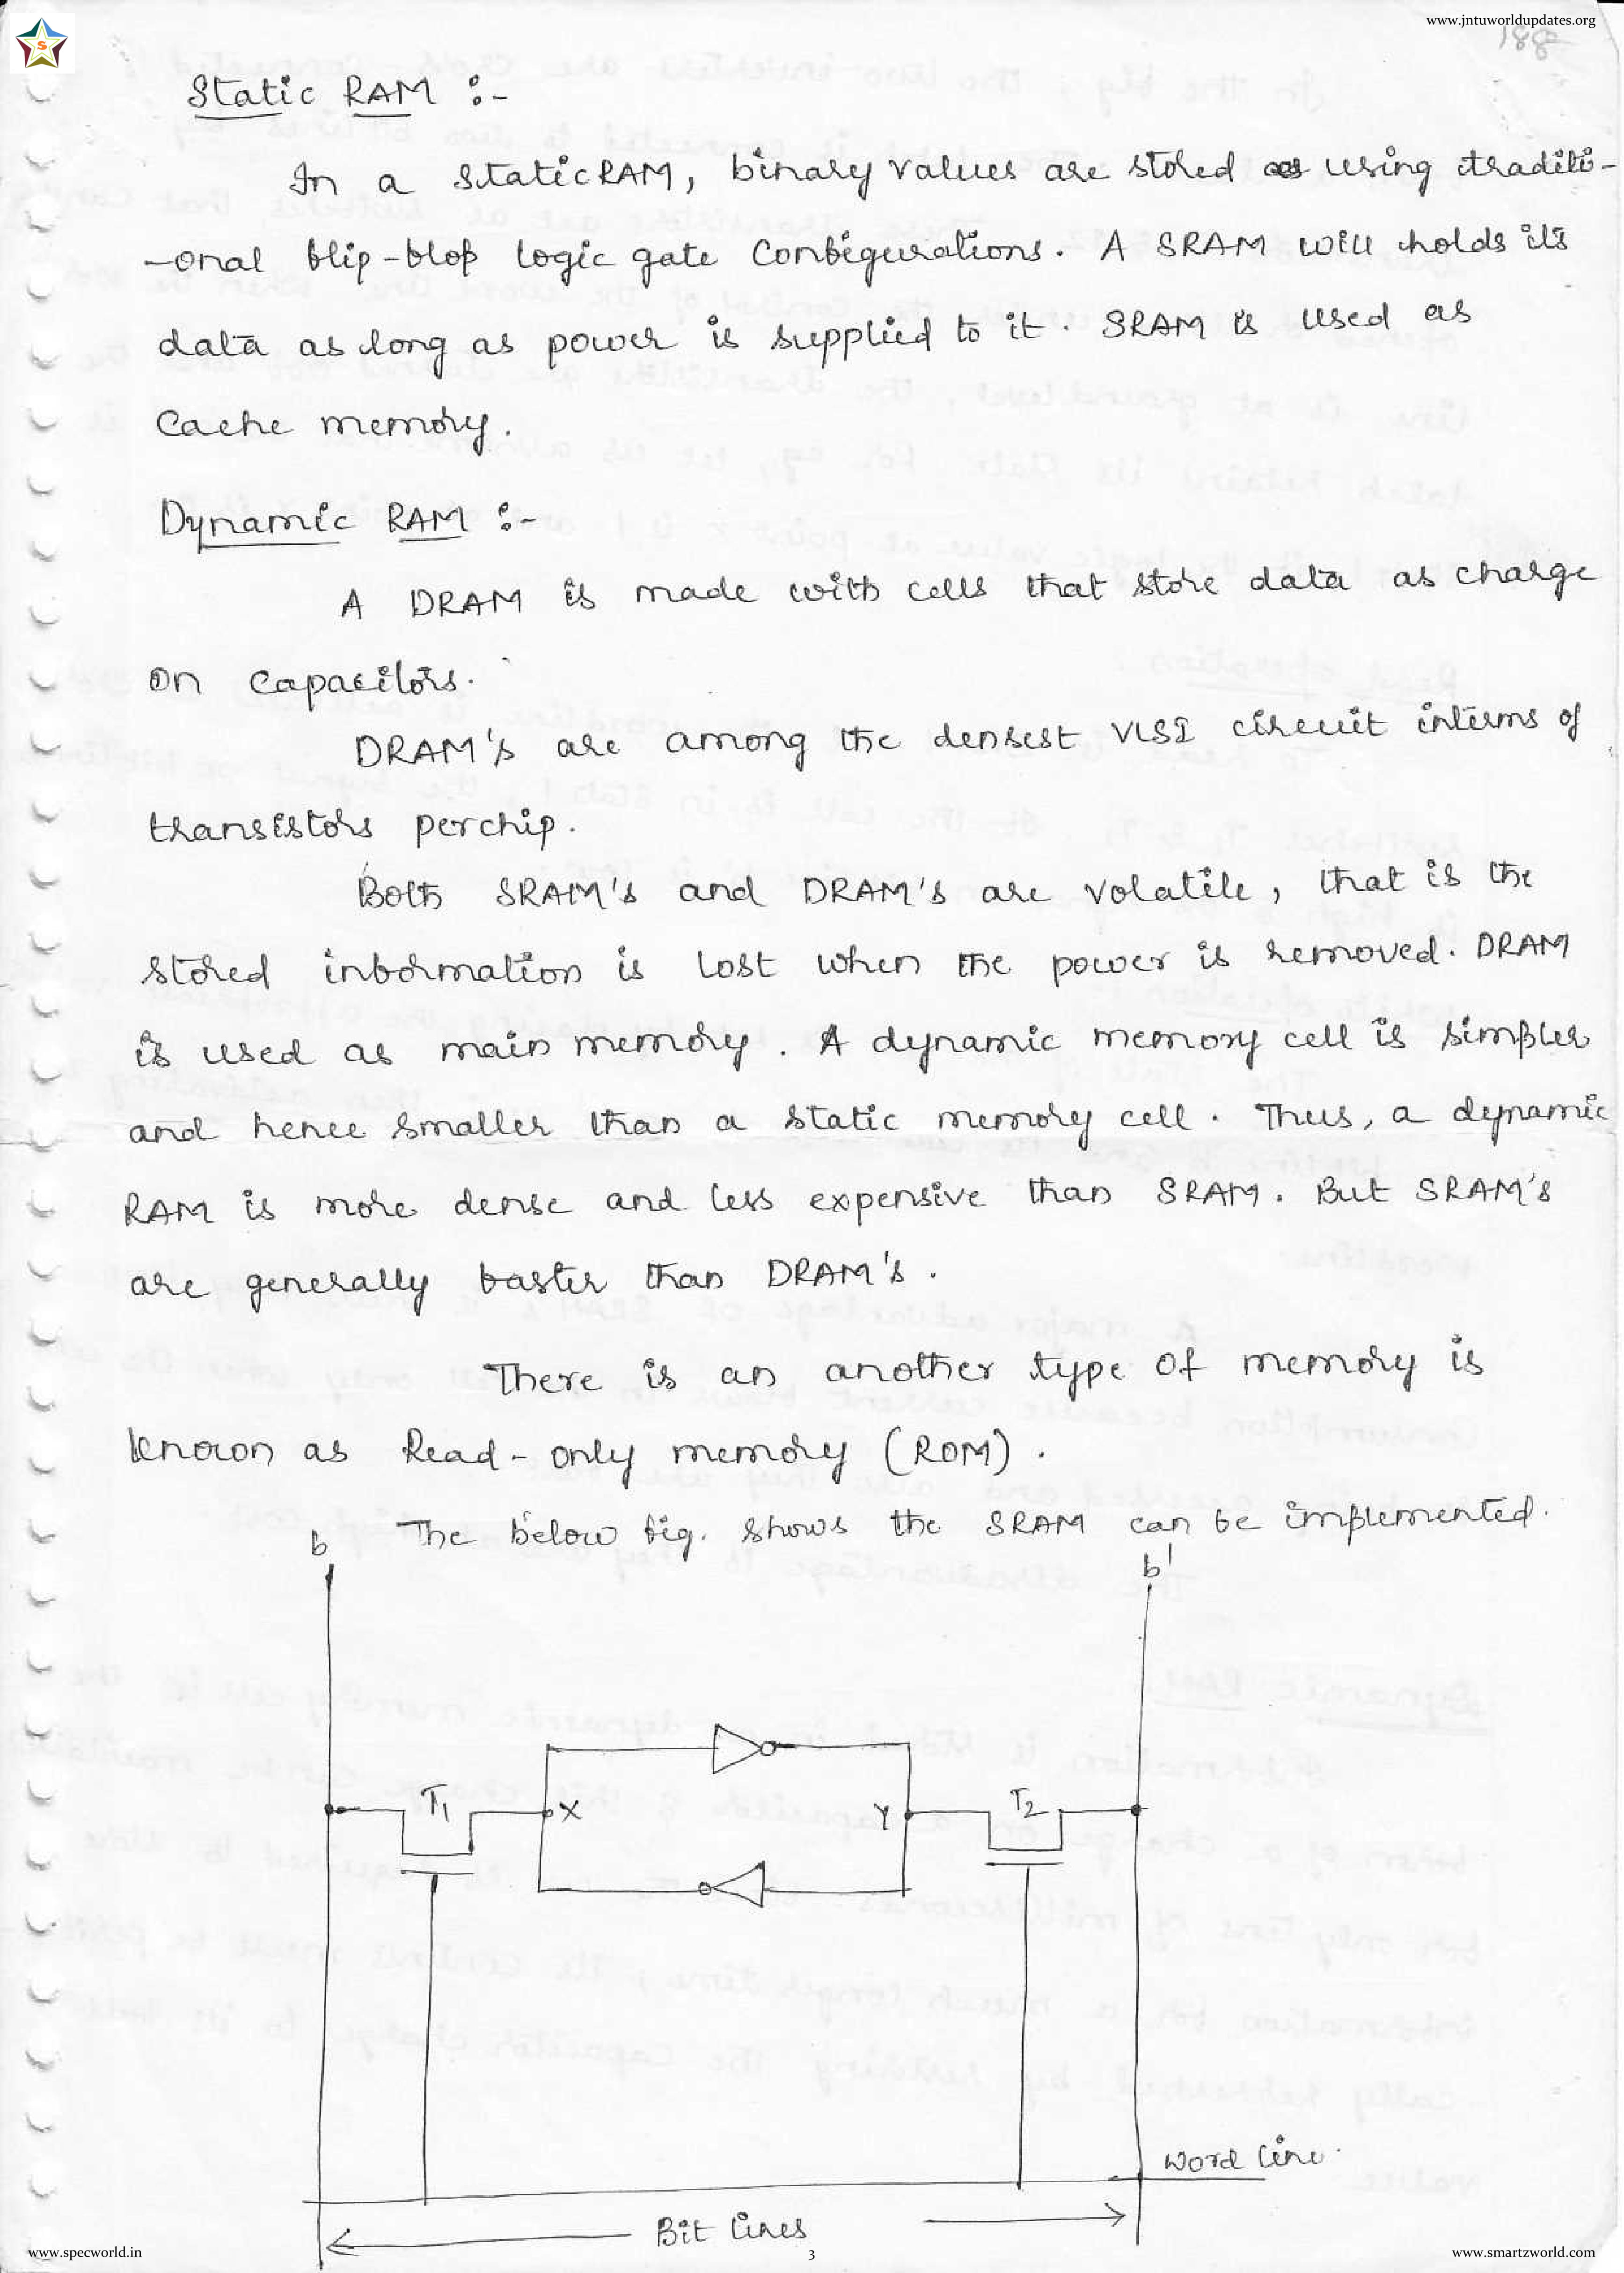 www.jntuworldupdates.org
S
188
Static RAM :-
In a static RAM, binary values are stored as using traditi-
-onal flip-flop logic gate configurations. A SRAM will holds its
data as long as power is supplied to it. SRAM is used as
Cache memory.
Dynamic RAM :-
A DRAM is made with cells that store data as charge
on capacitors.
DRAM's are among the densest VLSI circuit interms of
transistors perchip.
Both SRAM's and DRAM's are volatile, that is the
stored information is lost when the power is removed. DRAM
is used as main memory. A dynamic memory cell is simpler
and hence smaller than a static memory cell. Thus, a dynamic
RAM is more dense and less expensive than SRAM. But SRAM's
are generally faster than DRAM's.
There is an another type of memory is
known as Read-only memory (ROM).
The below fig. shows the SRAM can be implemented.
b
b'
T1
X
Y
T2
word line
Bit lines
www.specworld.in
3
www.smartzworld.com